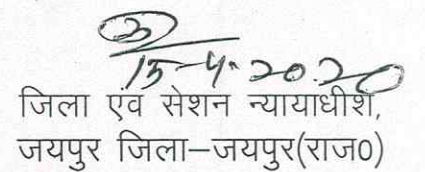 15-4-2020
जिला एंव सेशन न्यायाधीश,
जयपुर जिला–जयपुर(राज0)